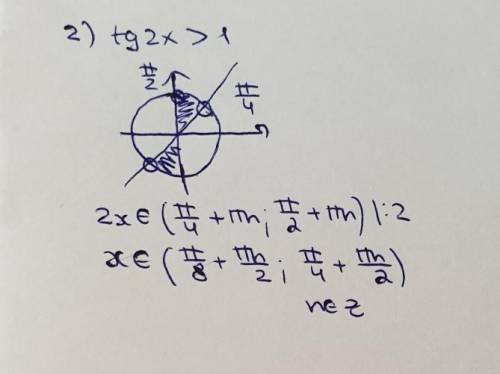 2) tg2x > 1
π/2
π/4
2x ∈ (π/4 + πn; π/2 + πn) |:2
x ∈ (π/8 + πn/2; π/4 + πn/2)
n∈z